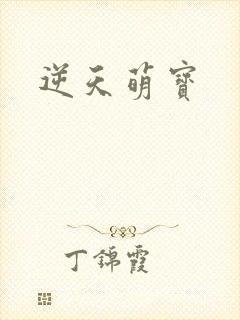 逆天萌寶
丁錦霞